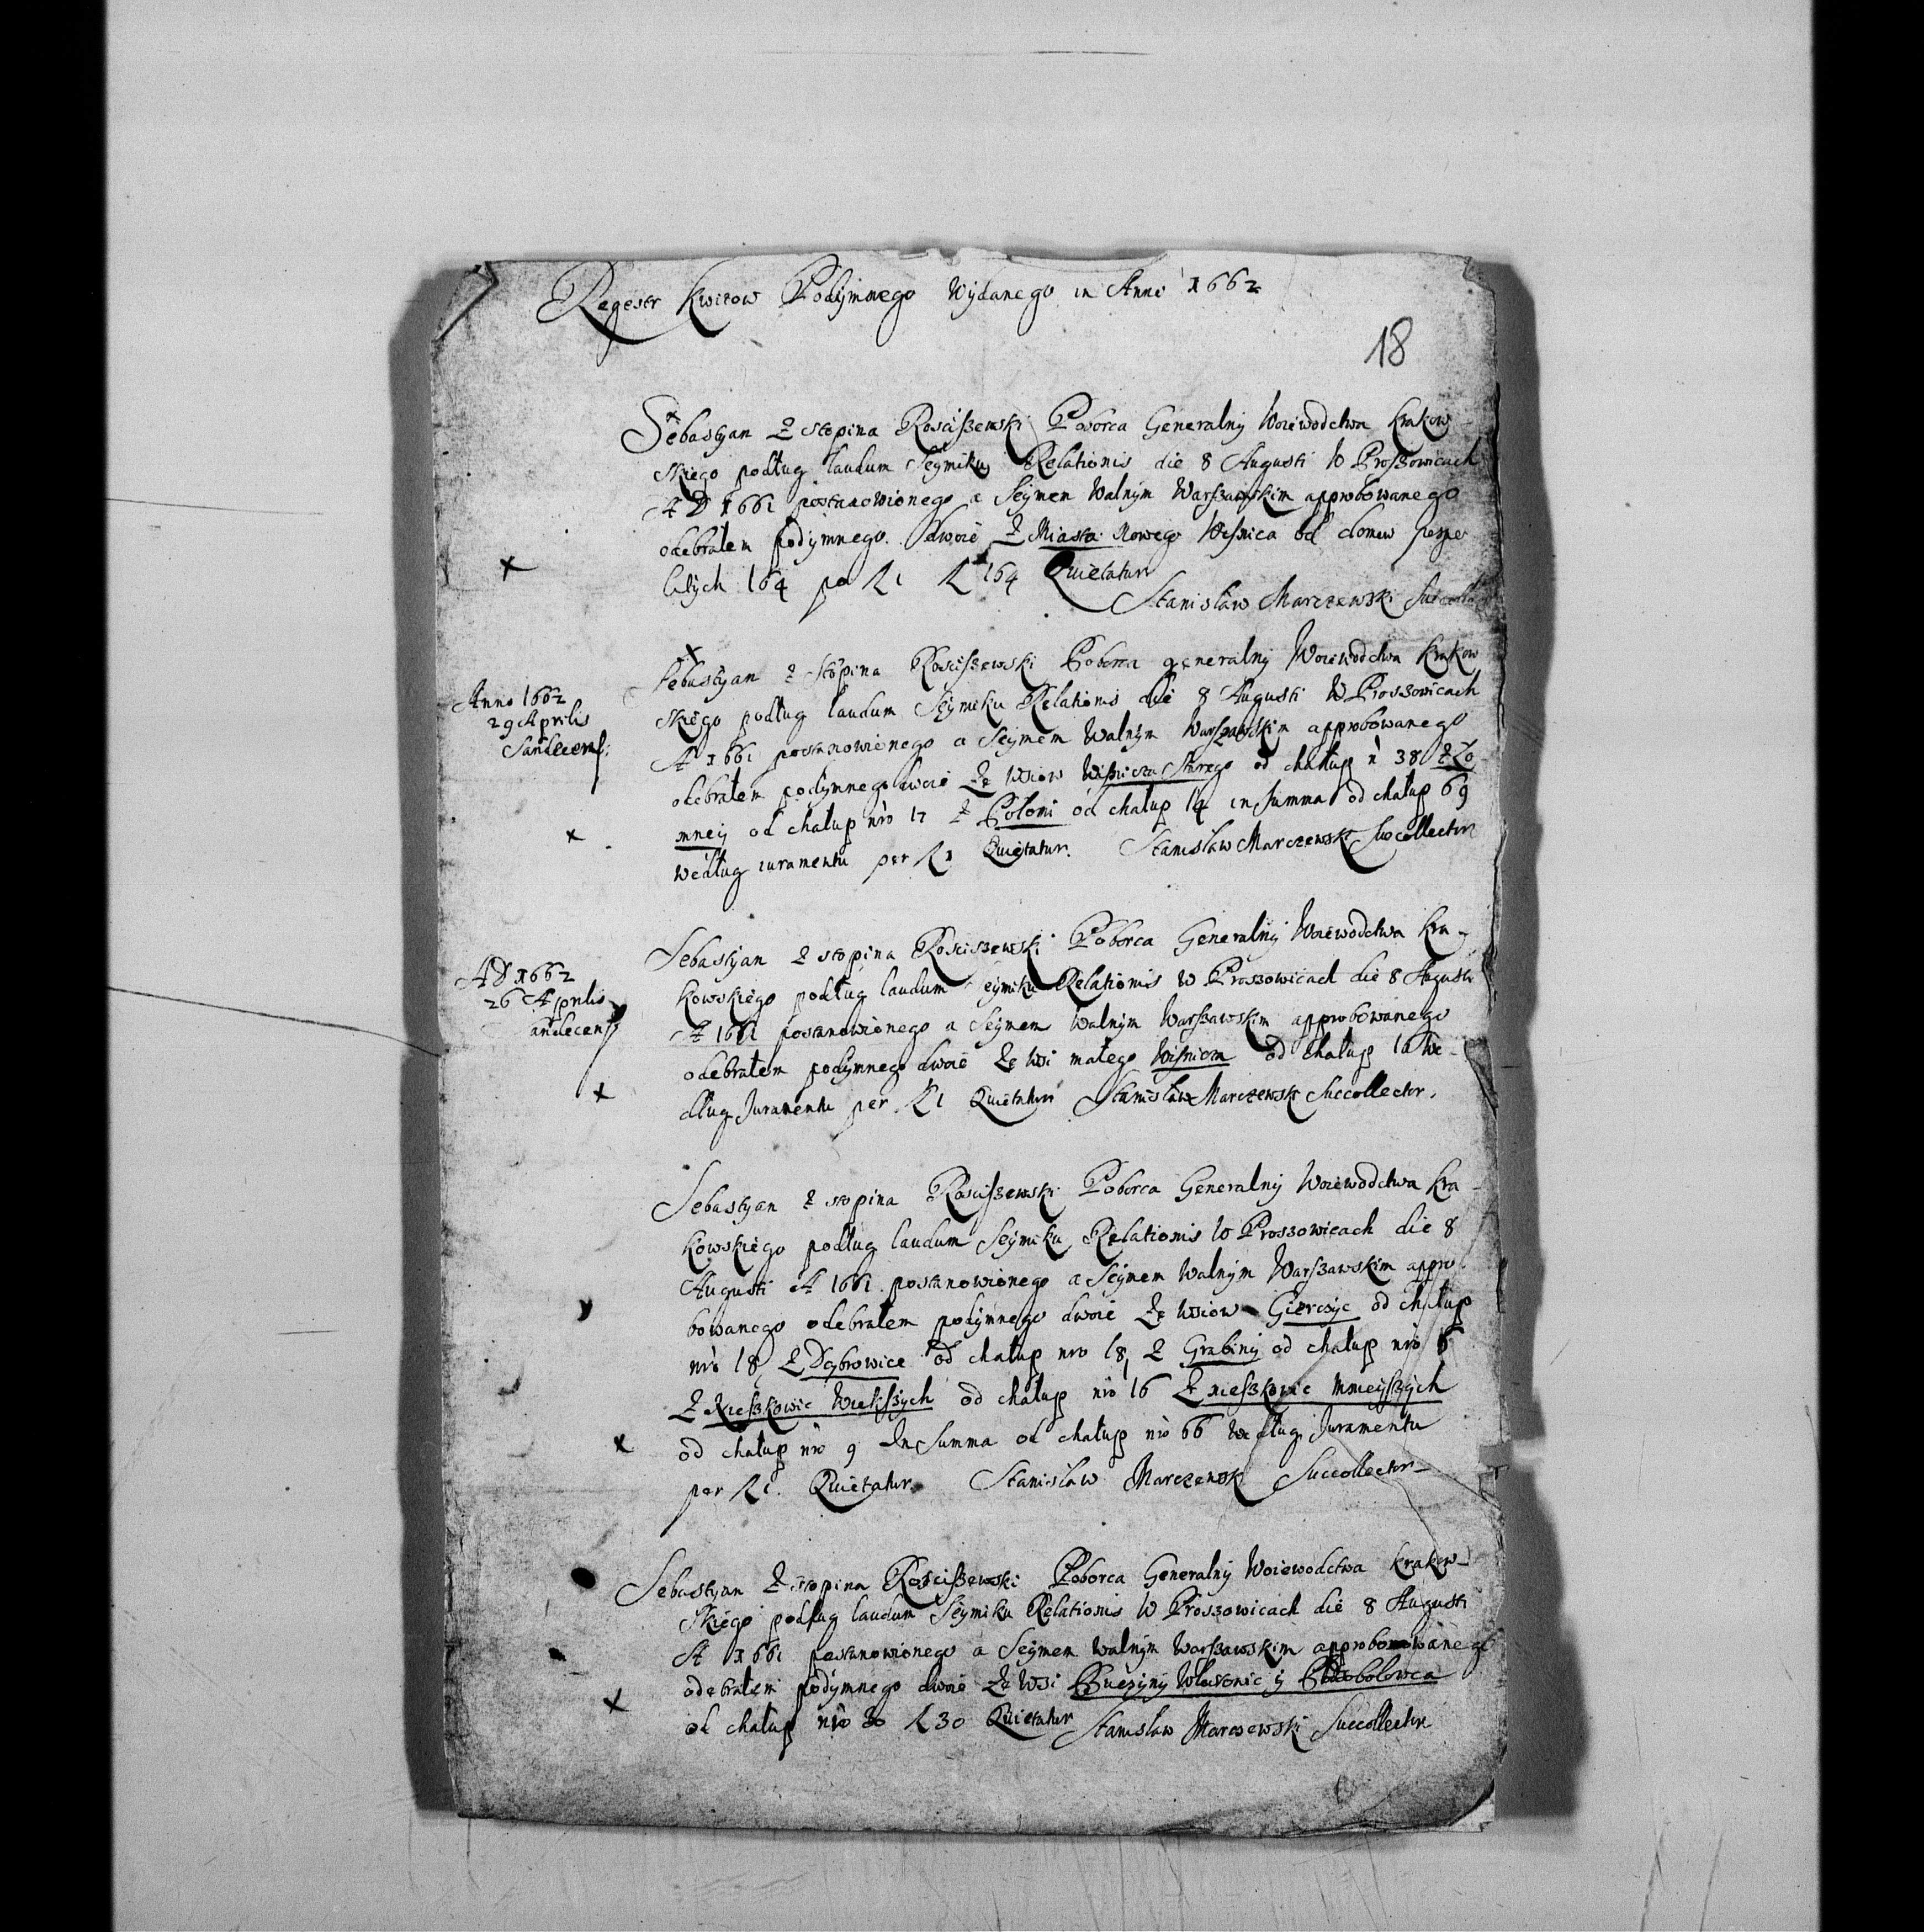 Regestr Kwitow Podymnego Wydanego in Anni 1662
18
Sebastyan z Stopina Rosciszewski Poborca Generalny Woiewodctwa Krakow
skiego podług laudum Seymiku Relationis die 8 Augusti W Proszowicach
A D 1661 postanowionego a Seymem Walnym Warszawskim approbowanego
odebrałem podymnego dwoie z Miasta Nowego Wisnica od domow pospo
litych 164 po fl 1 fl 164 Quietatur
Stanisław Marczewski
Sebastyan z Stopina Rosciszewski Poborca generalny Woiewodctwa Krakow
Anno 1662
29 Aprilis
Sandecens:
skiego podług laudum Seymiku Relationis die 8 Augusti W Proszowicach
A 1661 postanowionego a Seymem Walnym Warszawskim approbowanego
odebrałem podymnego dwoie Ze Wsiow Wisnicza Starego od chałup n 38 z Ło
mney od chałup nro 17 z Połomi od chałup 14 in Summa od chałup 69
według iuramentu per fl 1 Quietatur. Stanisław Marczewski Succollector
Sebastyan z Stopina Rosciszewski Poborca Generalny Woiewodctwa Kra-
AD 1662
26 Aprilis
andecens
kowskiego podług laudum Seymiku Relationis W Proszowicach die 8 Augusti
A 1661 postanowionego a Seymem Walnym Warszawskim approbowanego
odebrałem podymnego dwoie Ze Wsi małego Wisnica od chałup We-
dług Juramentu per fl 1 Quietatur Stanisław Marczewski Succollector.
Sebastyan z Stopina Rosciszewski Poborca Generalny Woiewodctwa Kra-
kowskiego podług laudum Seymiku Relationis W Proszowicach die 8
Augusti A 1661 postanowionego a Seymem Walnym Warszawskim appro
bowanego odebrałem podymnego dwoie Ze Wsiow Gierczyc od chałup
nro 18, z Dąbrowice od chałup nro 18, z Grabiny od chałup nro
z Nieszkowic Wiekszych od chałup nro 16 z Nieszkowic Mnieyszych
od chałup nro 9 In Summa od chałup nro 66 według Juramentu
per fl 1. Quietatur. Stanisław Marczewski Succollector
Sebastyan z Stopina Rosciszewski Poborca Generalny Woiewodctwa Krakow-
skiego podług laudum Seymiku Relationis W Proszowicach die 8 Augusti
A 1661 postanowionego a Seymem Walnym Warszawskim
odebrałem podymnego dwoie Ze Wsi y
od chałup nro 30 fl 30 Quietatur Stanisław Marczewski Succollector